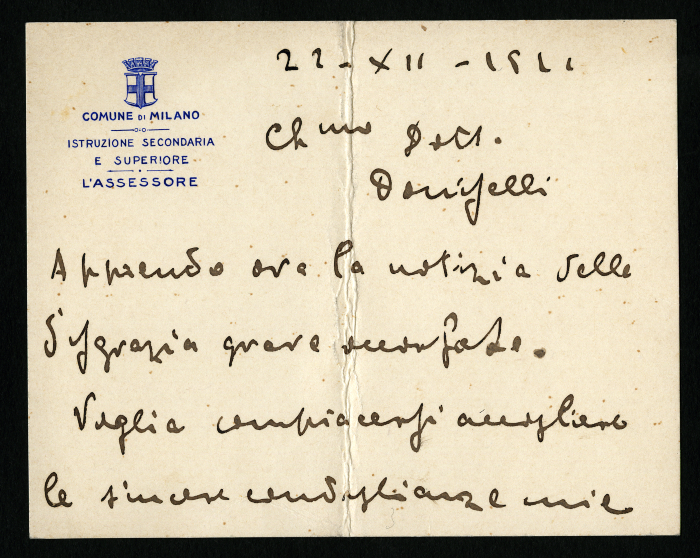 COMUNE DI MILANO
ISTRUZIONE SECONDARIA
E SUPERIORE
L'ASSESSORE
22-XII-1911
Ch mo Dott.
Doniselli
Apprendo ora la notizia della
disgrazia grave occorsale.
Voglia compiacersi accogliere
le sincere condoglianze mie